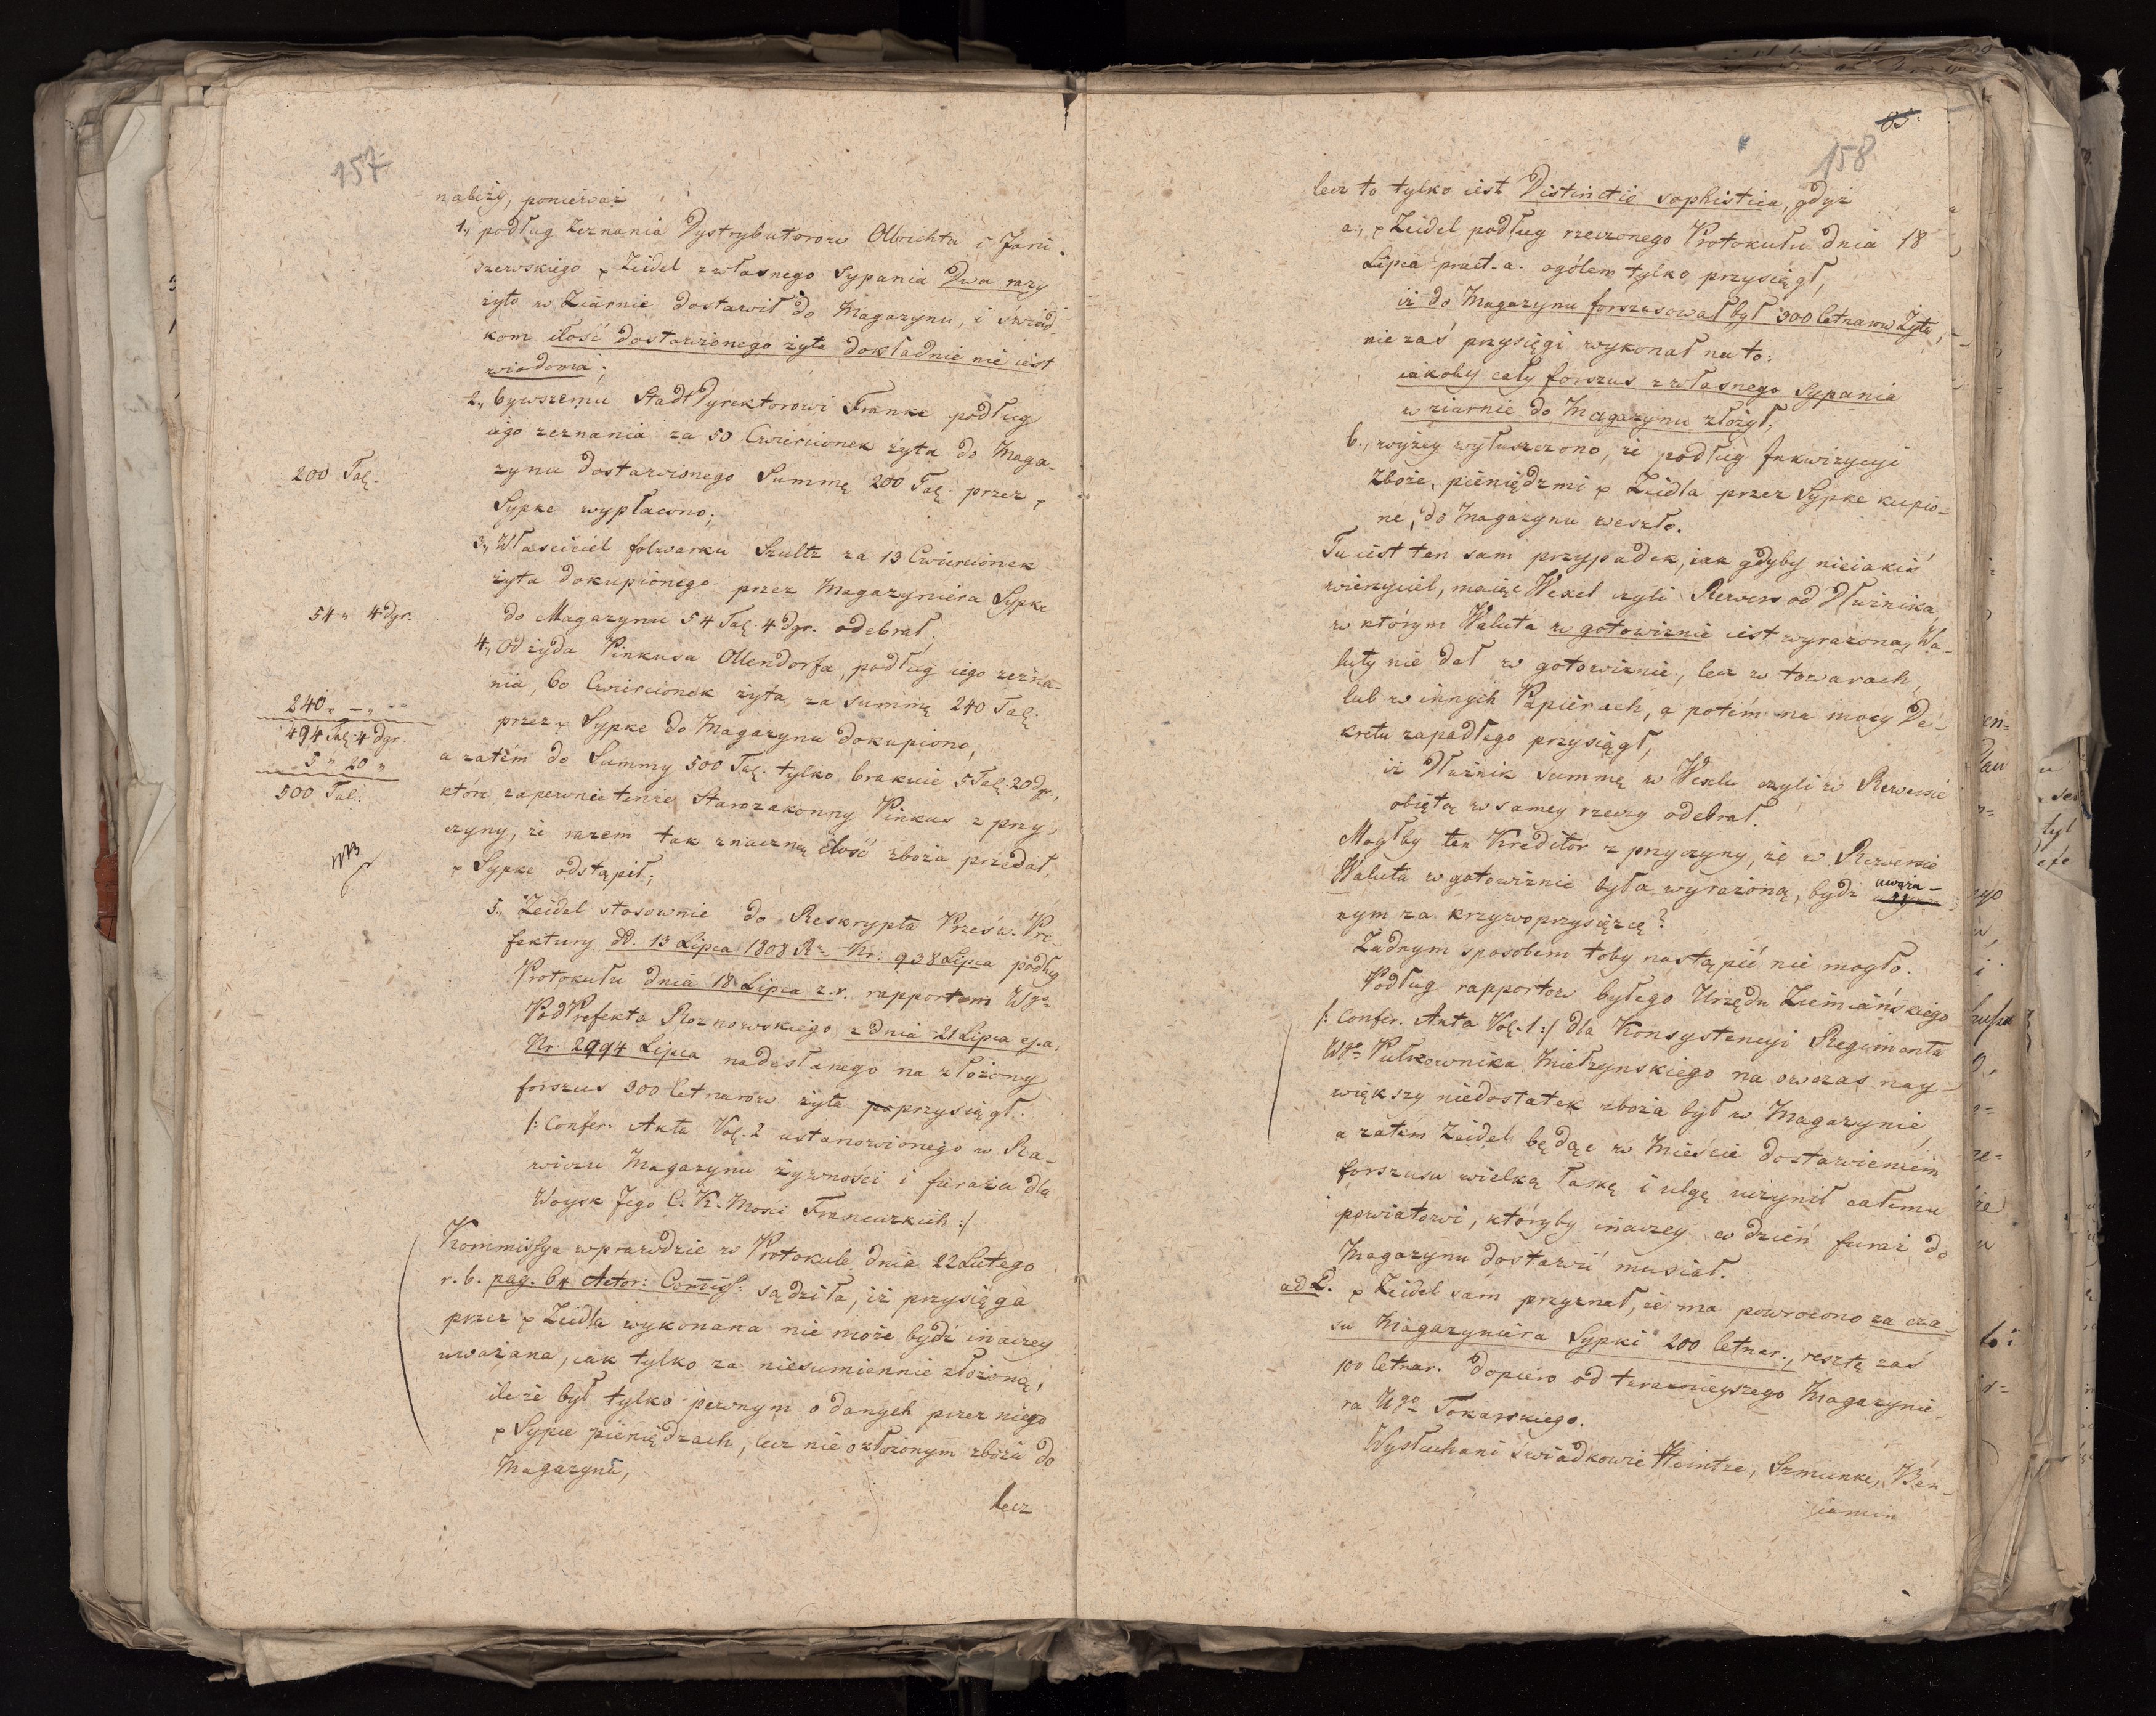 157
nabiży, ponieważ
1., podług Zeznania Dystrybutorow Olbrichta i Jani-
szewskiego p Zeidel z własnego Sypania Dwa razy
żyto w Ziarnie dostawił do Magazynu, i świad-
kom ilość dostawionego żyta dokładnie nie iest
wiadoma;
2., bywszemu StadtDyrektorowi Franke podług
iego zeznania za 50 Cwiercionek żyta do Maga-
200 Tal.
zynu dostawionego Summę 200 Tal. przez p
Sypke wypłacono;
3., Własciciel folwarku Szultz za 13 Cwiercionek
żyta dokupionego przez Magazyniera Sypke
54 " 4 dgr.
do Magazynu 54 Tal. 4 dgr. odebrał.
4., Od żyda Pinkusa Ollendorfa, podług iego zezna-
nia, 60 Cwiercionek żyta, za summę 240 Tal.
240 " – " –
przez p Sypke do Magazynu dokupiono,
494 Tal. 4 dgr.
a zatém do Summy 500 Tal. tylko brakuie 5 Tal. 20 dgr.,
5 " 20 "
które zapewnie tenże Starozakonny Pinkus z przy-
500 Tal.
czyny, że razem tak znaczną ilość zboża przedał,
NB
p Sypke odstąpił;
5., Zeidel stosownie do Reskrypta Prześw. Pre-
fektury dd. 13 Lipca 1808 Rº Nr. 938 Lipca podług
Protokułu dnia 18 Lipca z. r. rapportem Wgo
PodPrefekta Roznowskiego z dnia 21 Lipca ej. a.
Nr. 2994 Lipca nadesłanego na złożony
forszus 300 Cetnarów żyta po przysiągł.
/: Confer. Akta Vol. 2 ustanowionego w Ra-
wiczu Magazynu żywności i furażu dla
Woysk Jego C. K. Mosci Francuzkich :/
Kommissya wprawdzie w Protokule dnia 22 Lutego
r. b. pag. 64 Actor: Comiss: sądziła, iż przysięga
przez p Zeidla wykonana nie może bydź inaczey
uważana, iak tylko za niesumiennie złożoną,
ileże był tylko pewnym o danych przez niego
p Sypce pieniędzach, lecz nie o złożonym zbożu do
Magazynu,
lecz
85.
158
lecz to tylko iest Distinctio sophistica, gdyż
a., p Zeidel podług rzeczonego Protokułu dnia 18
Lipca praet. a. ogólem tylko przysiągł,
iż do Magazynu forszusował był 300 Cetnarow Żyta,
nie zaś przysięgi wykonał na to:
iakoby cały forszus z własnego Sypania
w ziarnie do Magazynu złożył;
b., wyżey wyłuszczono, że podług Inkwizycyi
Zboże, pieniędzmi p Zeidla przez Sypke kupio-
ne, do Magazynu weszło.
Tu iest ten sam przypadek, iak gdyby nieiakiś
wierzyciel, maiąc Wexel czyli Rewers od Dłużnika,
w którym Waluta w gotowiznie iest wyrażona, Wa-
luty nie dał w gotowiznie, lecz w towarach,
lub w innych Papierach, a potém na mocy De-
kretu zapadłego przysiągł,
iż Dłużnik summę w Wexlu czyli w Rewersie
obiętą w samey rzeczy odebrał.
Mogłby ten Kreditor z przyczyny, że w Rewersie
Waluta w gotowiznie była wyrażoną, bydź uważa-
nym za krzywoprzysięzcę?
Żadnym sposobem toby nastąpić nie mogło.
Podług rapportow byłego Urzędu Ziemiańskiego
/: Confer. Akta Vol. 1 :/ dla Konsystencyi Regimentu
Wgo Pułkownika Mielżynskiego na owczas nay-
większy niedostatek zboża był w Magazynie,
a zatém Zeidel będąc w Mieście dostawieniem
forszusu wielką łaskę i ulgę uczynił całemu
powiatowi, któryby inaczey co dzień furaż do
Magazynu dostawić musiał.
ad 2. p Zeidel sam przyznał, że ma powrocono za cza-
su Magazyniera Sypki 200 Cetnar., resztę zaś
100 Cetnar. dopiéro od tereznieyszego Magazynie-
ra Ugo Tokarskiego.
Wysłuchani świadkowie Heintze, Szmunke, Ben-
iamin